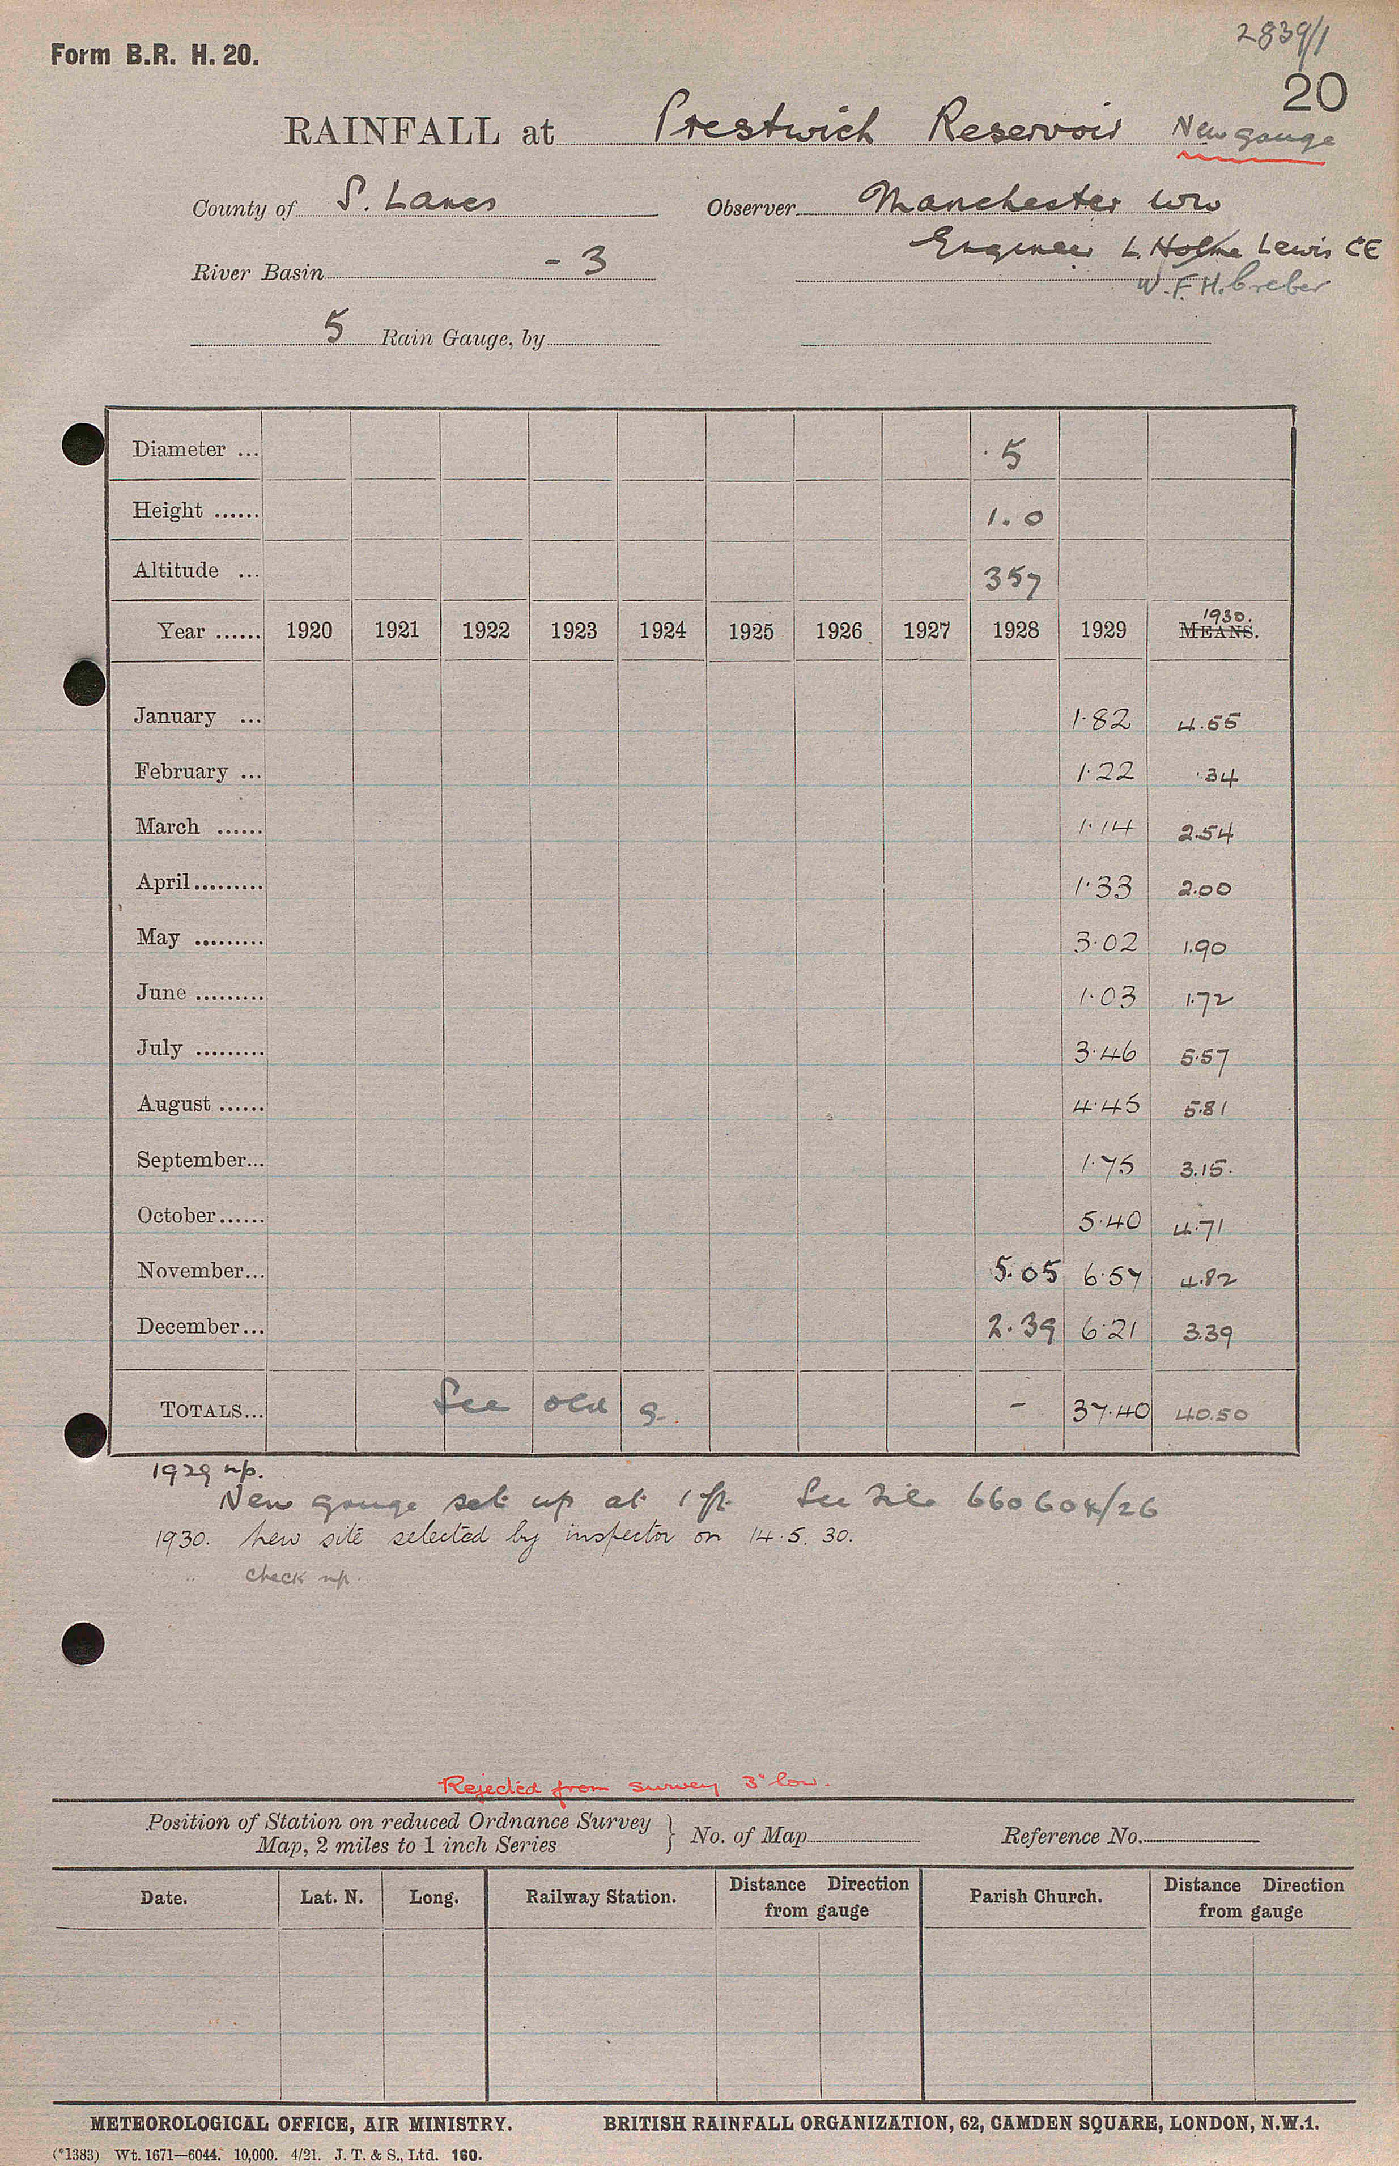 2839/1
Form B.R. H. 20.
20
RAINFALL at Prestwich Reservoir New gauge
County of S. Lancs Observer Manchester WW
Engineer L. Holme Lewis CE
River Basin - 3
W.F.H. Creber
5 Rain Gauge, by
Diameter ... 5
Height ...... 1.0
Altitude ... 357
Year ...... 1920 1921 1922 1923 1924 1925 1926 1927 1928 1929 MEANS. 1930.
January ... 1.82 4.55
February ... 1.22 .34
March ...... 1.14 2.54
April ......... 1.33 2.00
May ......... 3.02 1.90
June ......... 1.03 1.72
July ......... 3.46 5.57
August ...... 4.45 5.81
September... 1.75 3.15.
October...... 5.40 4.71
November... 5.05 6.57 4.82
December... 2.39 6.21 3.39
TOTALS... See old g. - 37.40 40.50
1929 np.
New gauge set up at 1 ft. See File 660604/26
1930. New site selected by inspector on 14.5.30.
" check np.
Rejected from survey 3" low.
Position of Station on reduced Ordnance Survey
Map, 2 miles to 1 inch Series } No. of Map Reference No.
Date. Lat. N. Long. Railway Station. Distance Direction from gauge Parish Church. Distance Direction from gauge
METEOROLOGICAL OFFICE, AIR MINISTRY. BRITISH RAINFALL ORGANIZATION, 62, CAMDEN SQUARE, LONDON, N.W.1.
(*1383) Wt. 1671—6044. 10,000. 4/21. J. T. & S., Ltd. 160.